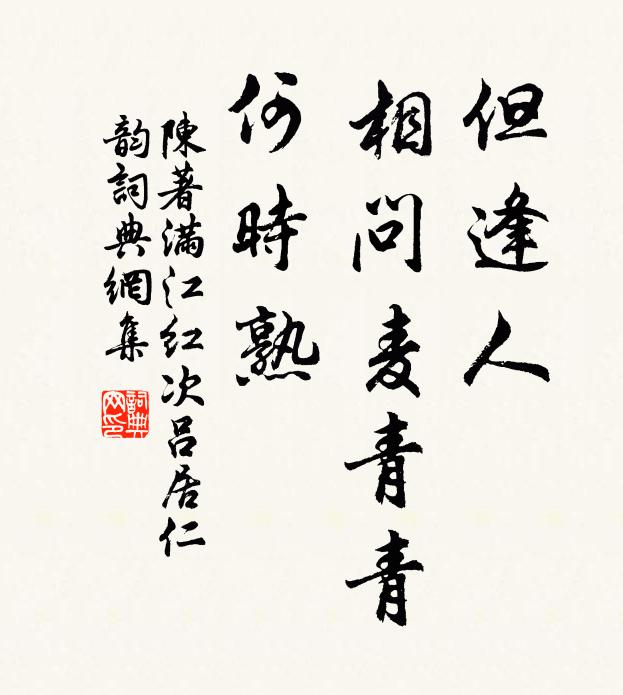 但逢人
相問麦青青
何時熟
陳著满江红次吕居仁
韵詞典網集
詞典
网印